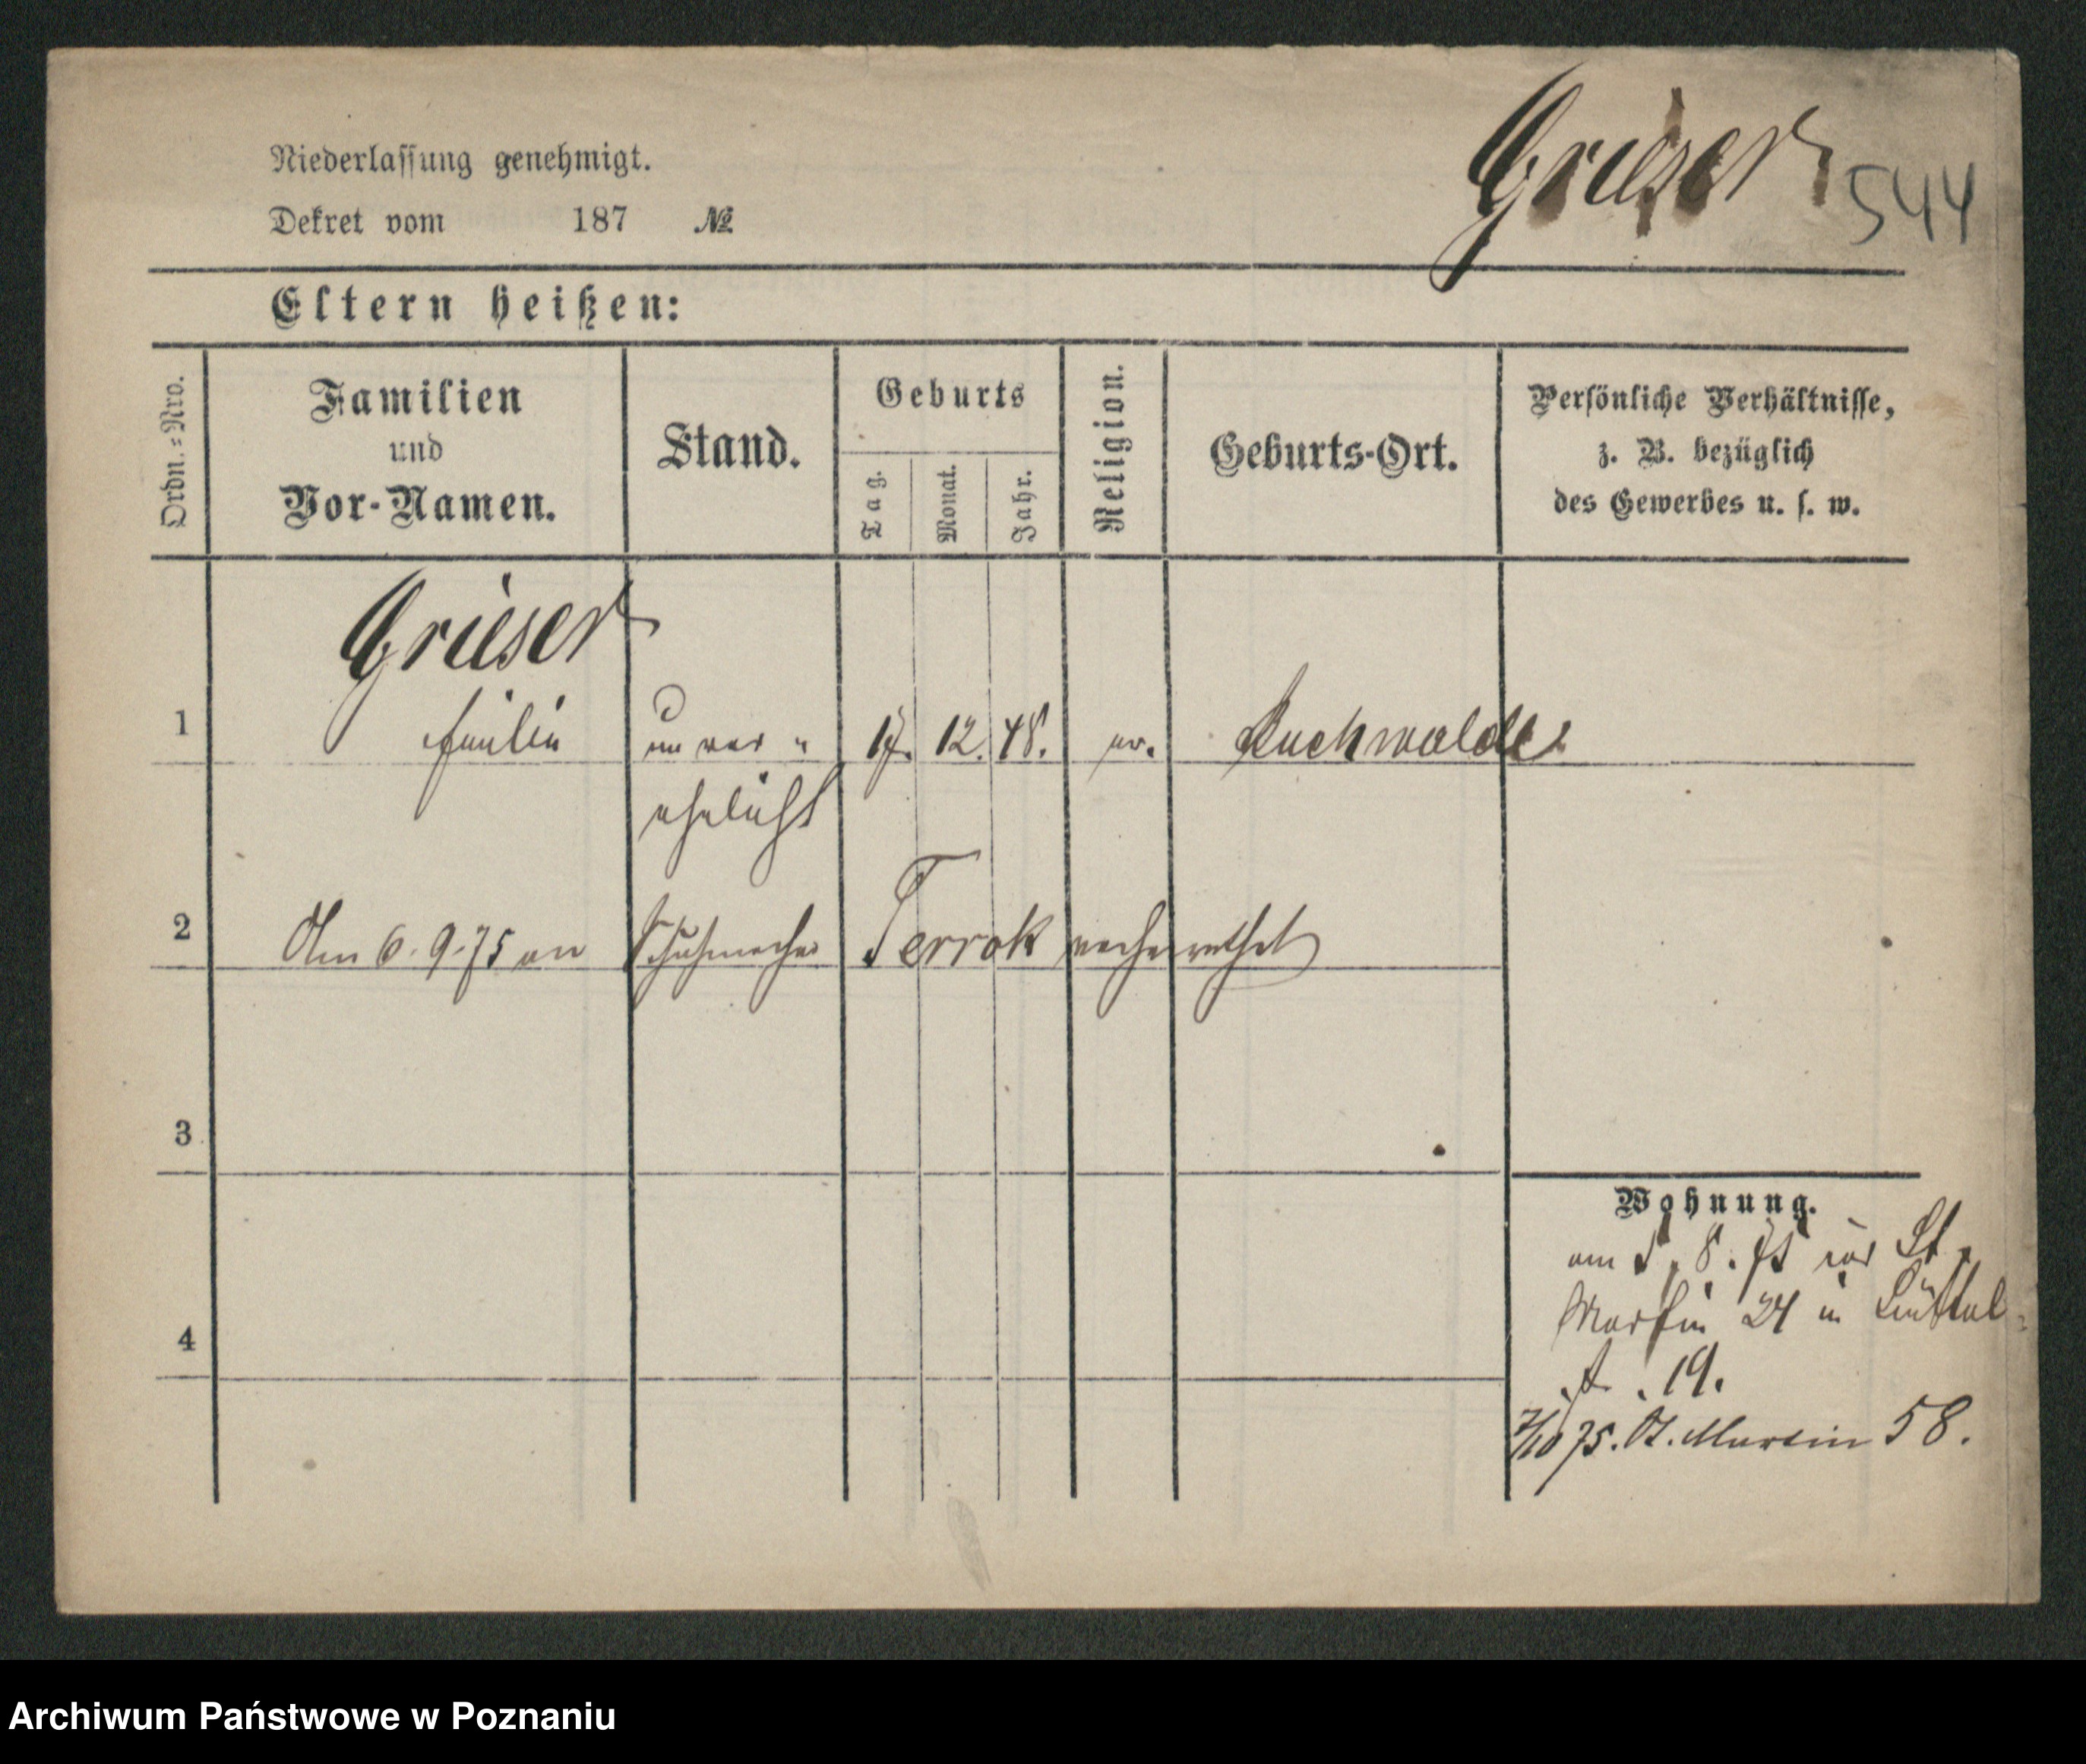 Grieser 544
Niederlassung genehmigt.
Dekret vom 187 №
Eltern heißen:
Ordn.=Nro.
Familien
und
Vor-Namen.
Stand.
Geburts
Tag.
Monat.
Jahr.
Religion.
Geburts-Ort.
Persönliche Verhältnisse,
z. B. bezüglich
des Gewerbes u. s. w.
Grieser
1 unver= 17. 12. 48. ev. Buchwalde
ehelicht
2 Am 6. 9. 75 an Schuhmacher Terrok verheirathet
3
4
Wohnung.
am 5. 8. 75 von St.
Martin 24 in
19.
7/10 75. St. Martin 58.
Archiwum Państwowe w Poznaniu